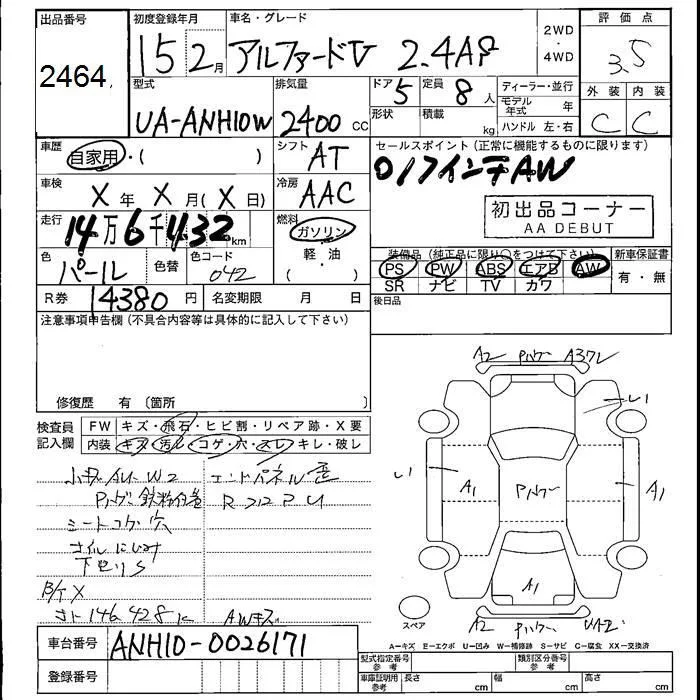 出品番号
2464
初度登録年月
15 2月
車名・グレード
アルファードV 2.4AS
2WD
・
4WD
評価点
3.5
外装 内装
C C
型式
UA-ANH10W
排気量
2400 CC
ドア 5
形状
定員 8人
積載 kg
ディーラー・並行
モデル年式 年
ハンドル 左・右
車歴
自家用・( )
シフト
AT
セールスポイント(正常に機能するものに限ります)
17インチAW
初出品コーナー
AA DEBUT
車検
X 年 X 月(X 日)
冷房
AAC
走行
14万6千432km
燃料
ガソリン
・軽・油
( )
色
パール
色替
色コード
042
装備品(純正品に限り〇をつけて下さい)
PS PW ABS エアB AW
SR ナビ TV カワ
新車保証書
有・無
R券 14380円
名変期限 月 日
後日品
注意事項申告欄(不具合内容等は具体的に記入して下さい)
修復歴 有 〔箇所 〕
検査員
記入欄
FW キズ・飛石・ヒビ割・リペア跡・X要
内装 キズ・汚レ・コゲ・穴・スレ・キレ・破レ
小キズAU W2
エンドパネル歪
鉄粉付着
シートコゲ穴
オイルにじみ
下廻りS
AWキズ
A2
A1
A1
A1
A1
A2
スペア
A-キズ E-エクボ U-凹み W-補修跡 S-サビ C-腐食 XX-交換済
車台番号
ANH10-0026171
登録番号
型式指定番号
参考
類別区分番号
参考
車庫証明用
参考
長さ cm
幅 cm
高さ cm